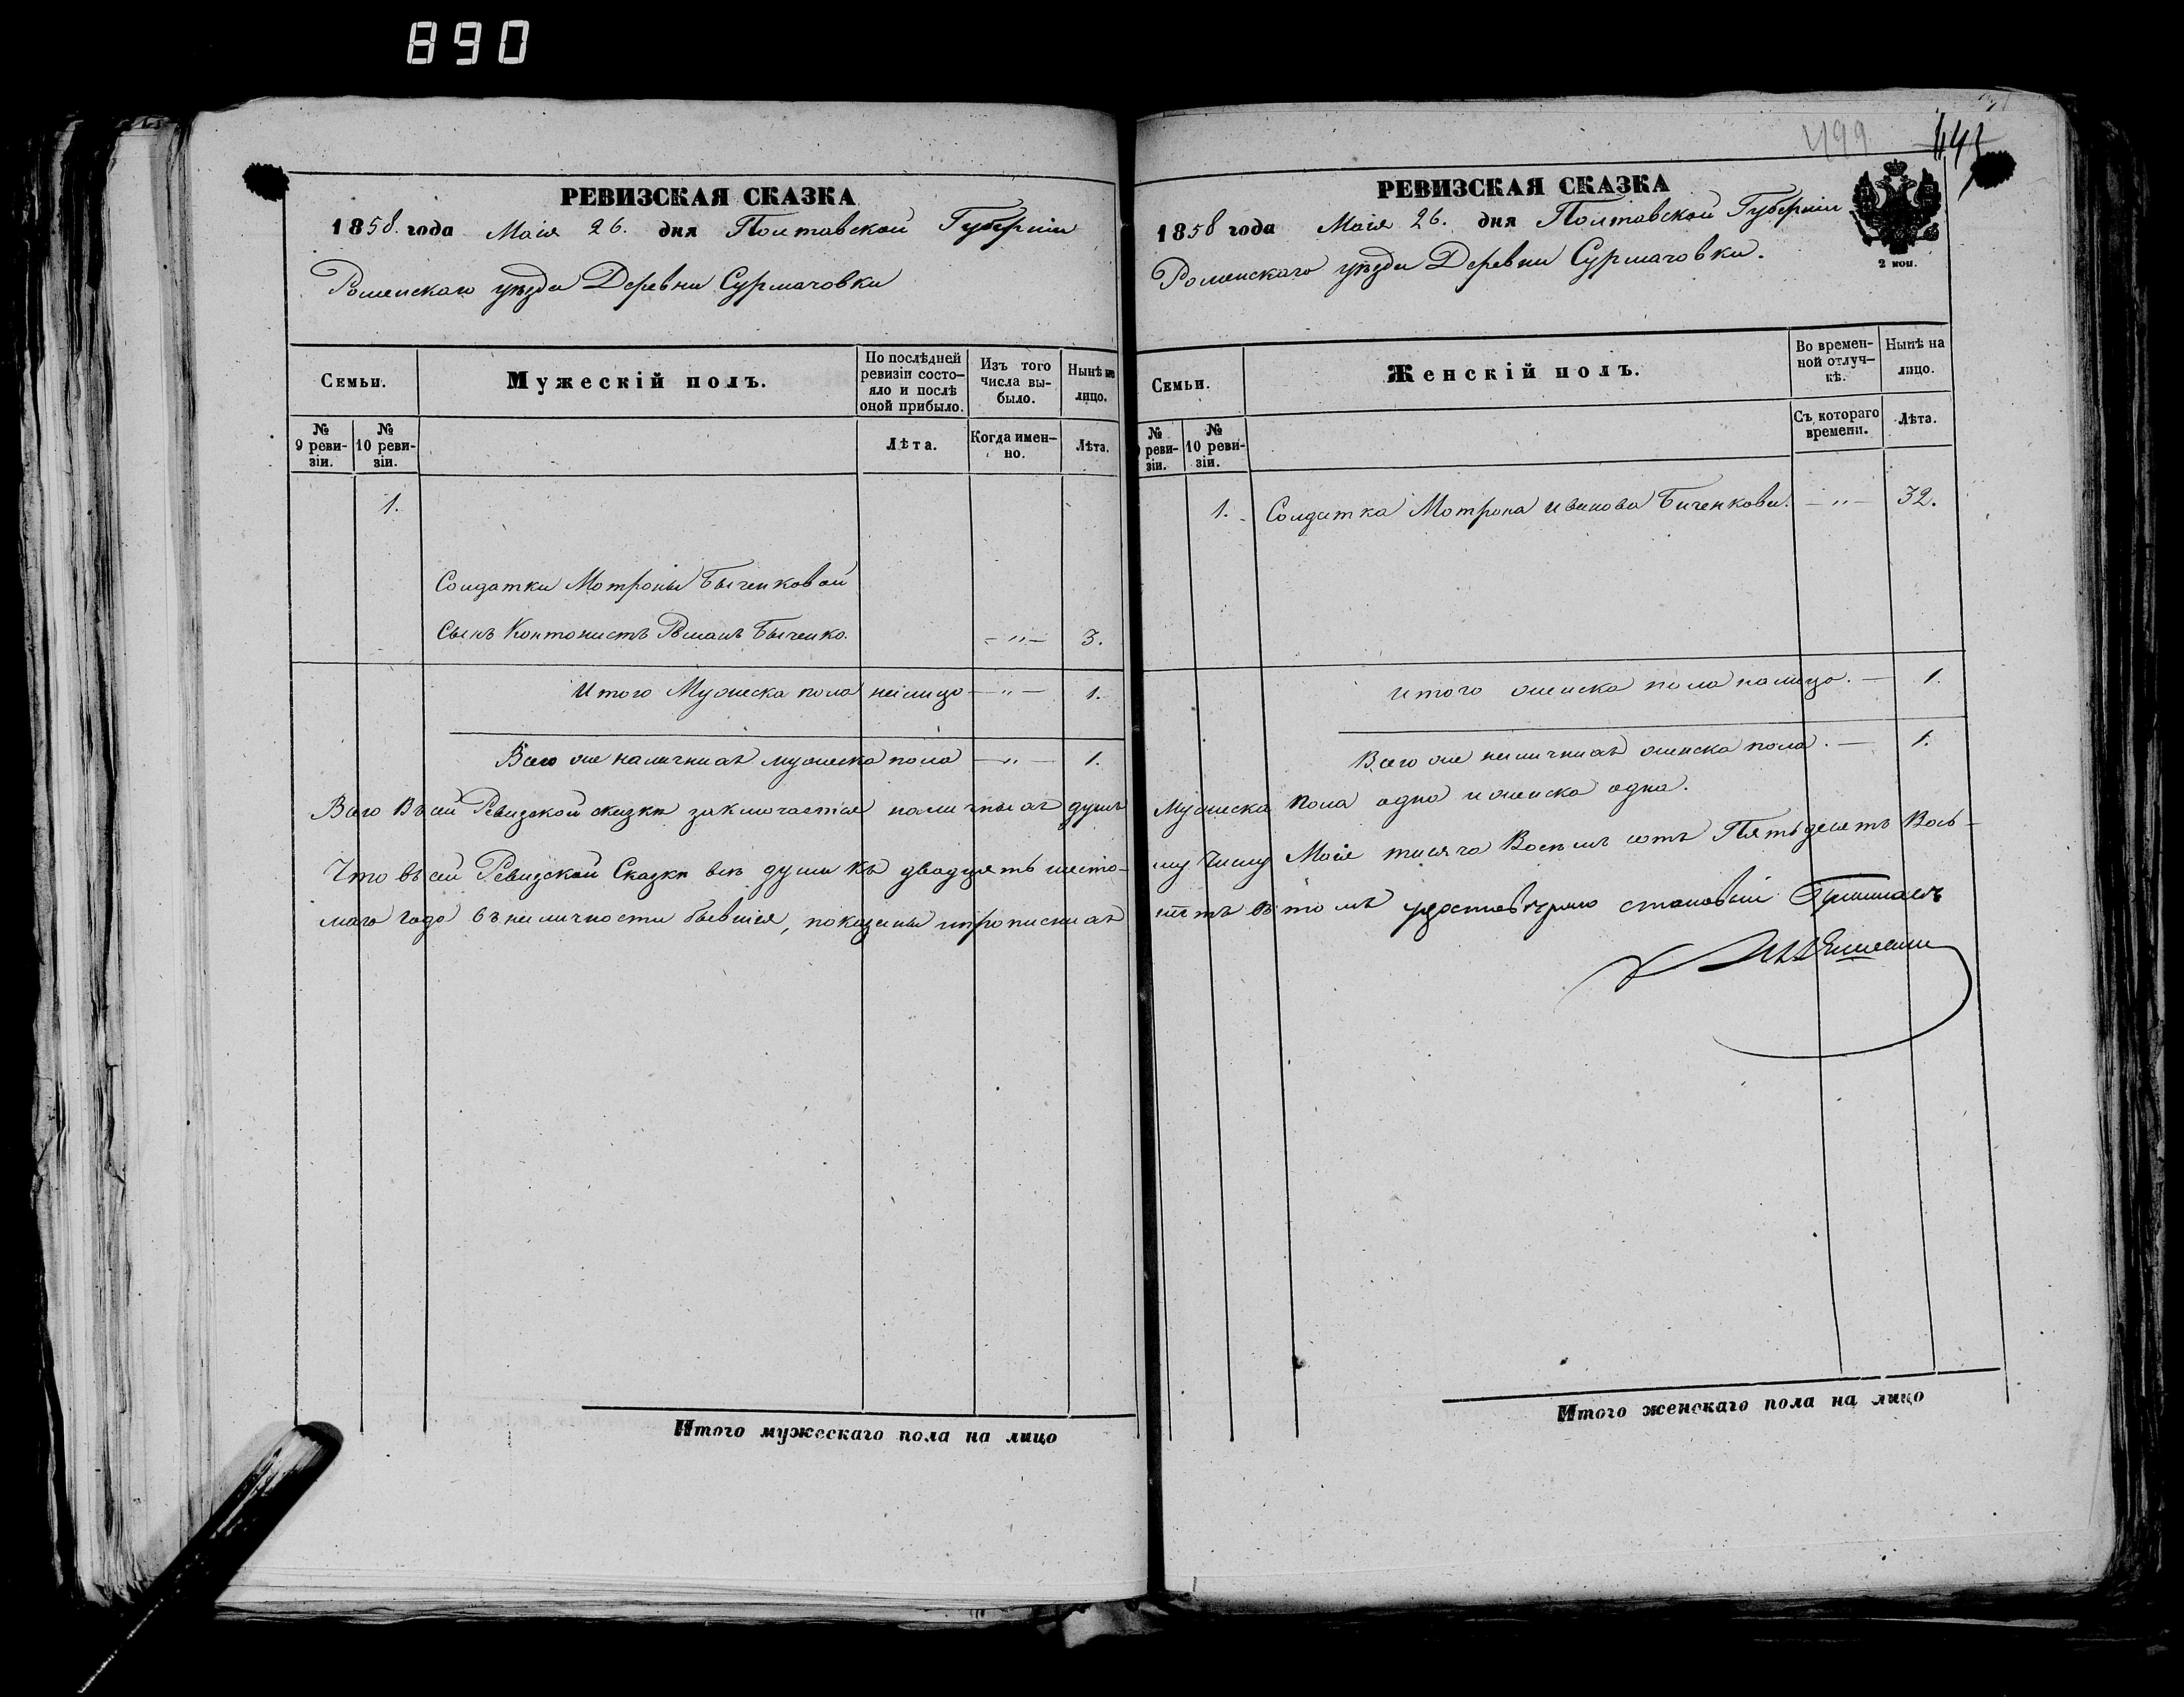 890
РЕВИЗСКАЯ СКАЗКА
1858. года Маія 26. дня Полтавской Губерніи
Роменскаго уѣзда Деревни Сурмачовки
Семьи.
Мужескій полъ.
По послѣдней ревизіи состояло и послѣ оной прибыло.
Изъ того числа выбыло.
Нынѣ на лицо.
№ 9 ревизіи.
№ 10 ревизіи.
Лѣта.
Когда именно.
Лѣта.
1.
Солдатки Мотроны Быченковой
Сынъ Контонистъ Романъ Быченко. — " — 3.
Итого Мужеска пола налицо — " — 1.
Всего же наличныхъ мужеска пола — " — 1.
Всего Въ сей Ревизской сказкѣ заключается наличныхъ душъ
Что въ сей Ревизской Сказкѣ всѣ души къ двадцять шесто-
маго года въ наличности бывшія, показаны
Итого мужескаго пола на лицо
499
РЕВИЗСКАЯ СКАЗКА
1858 года Маія 26. дня Полтавской Губерніи
Роменскаго уѣзда Деревни Сурмачовки.
2 коп.
Семьи.
Женскій полъ.
Во временной отлучкѣ.
Нынѣ на лицо.
№ 9 ревизіи.
№ 10 ревизіи.
Съ котораго времени.
Лѣта.
1. Солдатка Мотрона Иванова Биченкова. — " — 32.
Итого женска пола налицо. — 1.
Всего же наличныхъ женска пола. — 1.
Мужеска пола одна и женска одна.
му Числу Маія тисяча Восемь сотъ Пятьдесятъ Вось-
въ томъ удостовѣряю становый
Итого женскаго пола на лицо